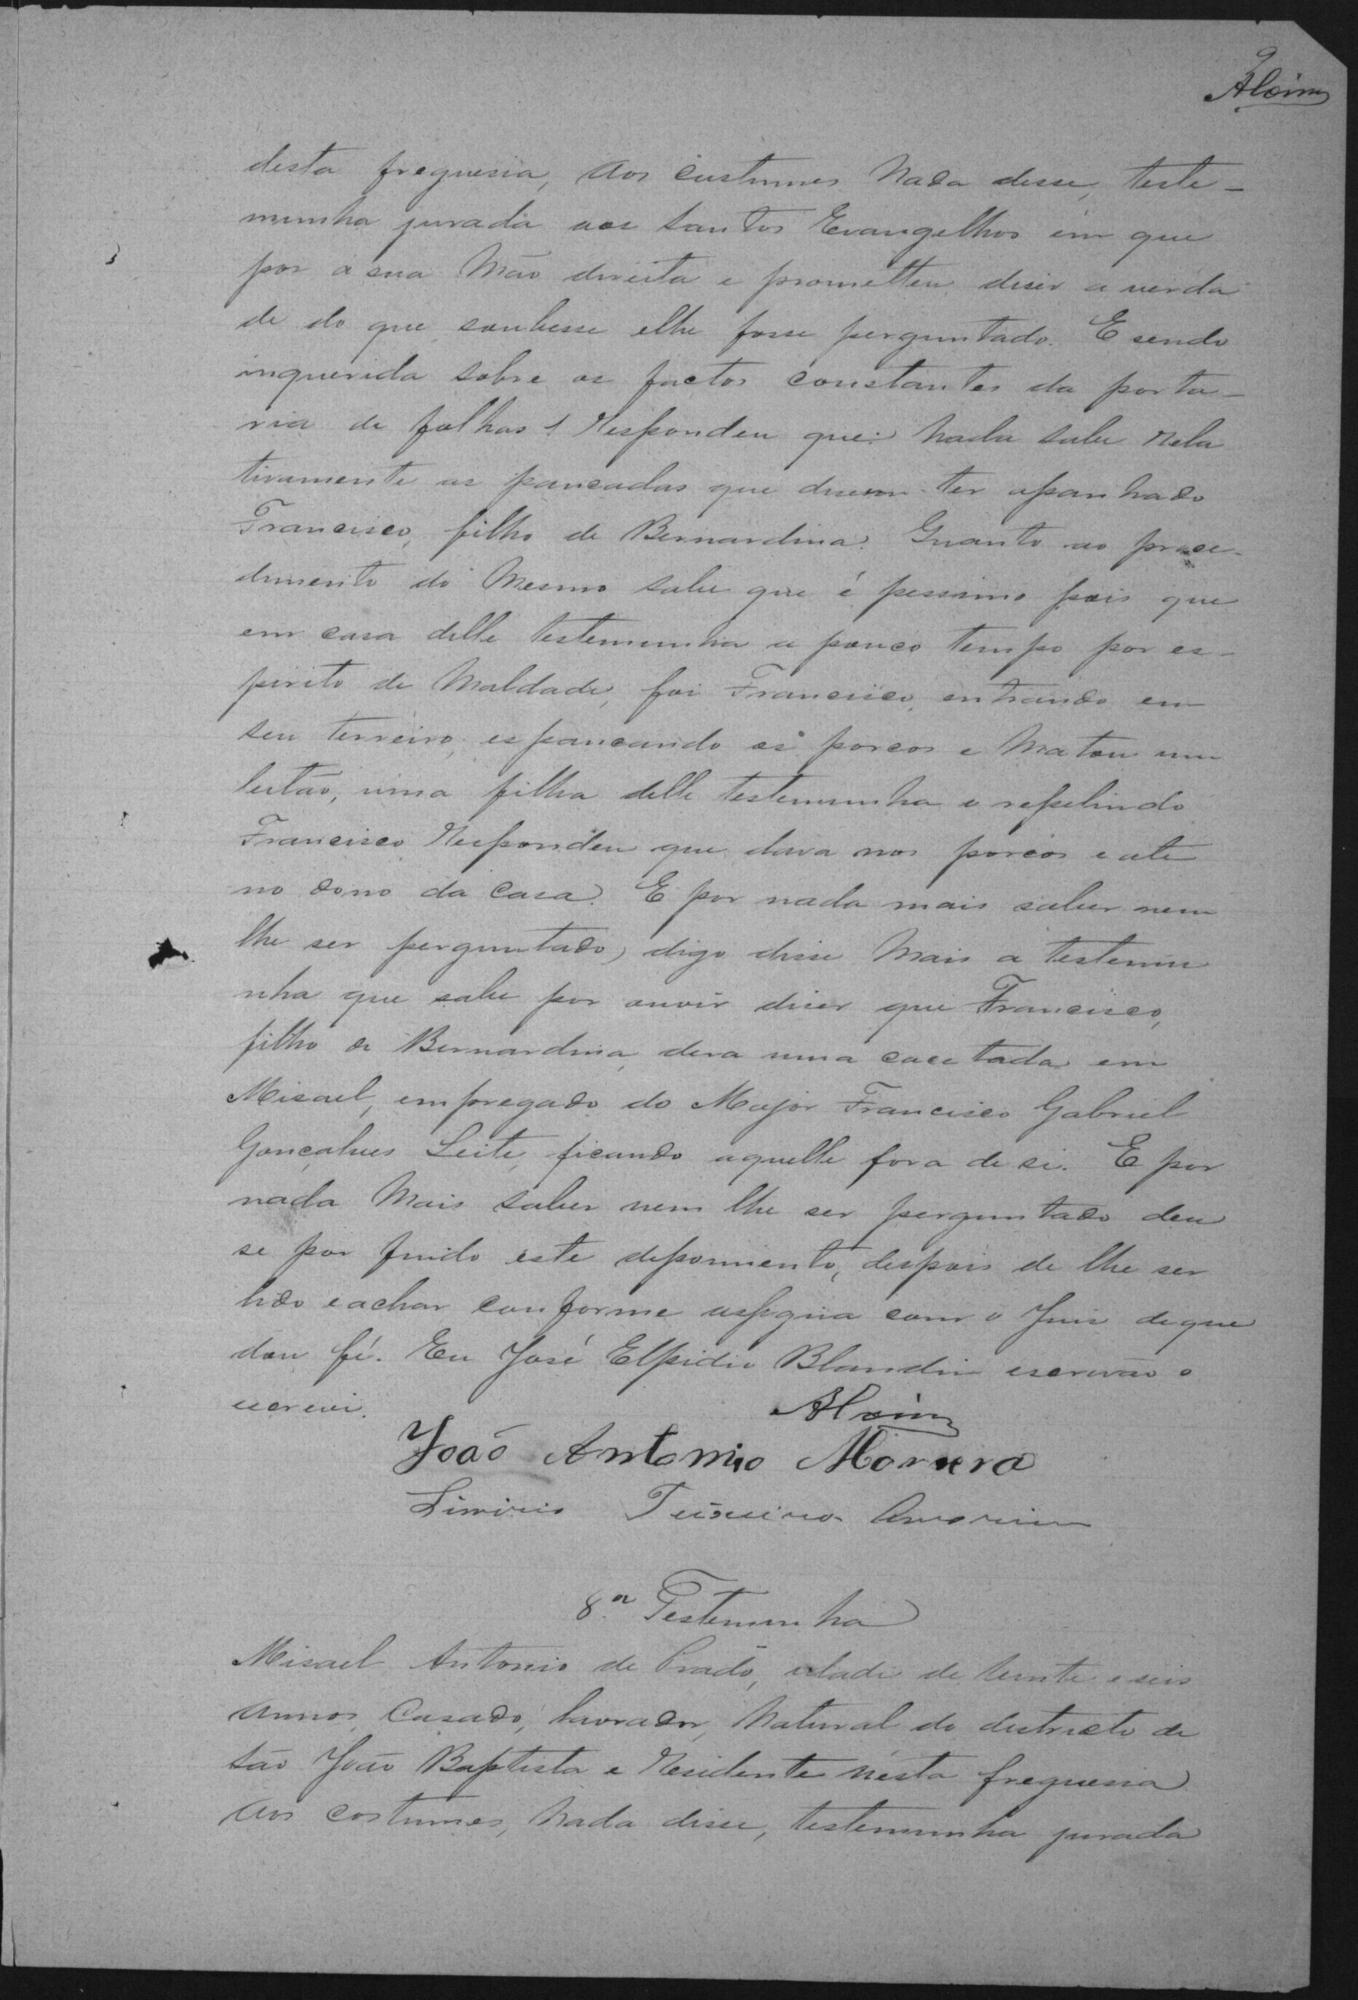 9
Aloim
desta freguesia, aos custumes nada desse, teste-
munha jurada aos santos Evangelhos em que
por a sua mão direita e prometteu diser a verda
de do que soubesse elhe fosse perguntado. E sendo
inquerida sobre os factos constantes da porta-
ria de folhas 1 respondeu que: nada sabe rela
tivamente as pancadas que disem ter apanhado
Francisco, filho de Bernardina. Quanto ao proce-
dimento do mesmo sabe que é pessimo pois que
em casa delle testemunha a pouco tempo por es-
pirito de maldade, foi Francisco, entrando em
seu terreiro, espancando os porcos e matou um
leitão, uma filha delle testemunha o repelindo
Francisco respondeu que dava nos porcos e até
no dono da casa. E por nada mais saber nem
lhe ser perguntado, digo disse mais a testemu
nha que sabe por ouvir diser que Francisco,
filho de Bernardina, dera uma cacetada em
Misael, empregado do Major Francisco Gabriel
Gonçalves Leite, ficando aquelle fora de si. E por
nada mais saber nem lhe ser perguntado deu
se por findo este depoimento, despois de lhe ser
lido e achar conforme assigna com o Juis de que
dou fé. Eu José Elpidio Blandin escrivão o
escrevi.
Aloim
João Antonio Morera
Teixeira Amorim
8.a Testemunha
Misael Antonio de Prado, idade de vinte e seis
annos, casado, lavrador, natural do districto de
são João Baptista e residente nesta freguesia
aos costumes, nada disse, testemunha jurada